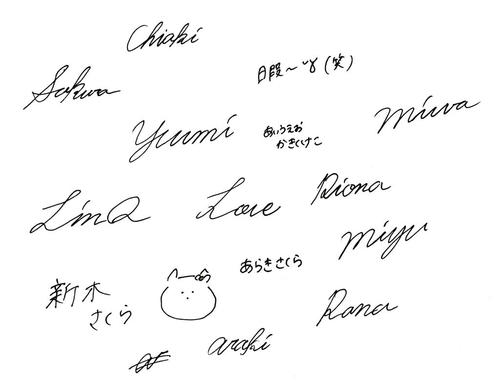 Chiaki
日暇～💦(笑)
Sakura
Miwa
Yuumi
あいうえお
かきくけこ
LinQ Love Riona
Miyu
あらきさくら
新木
さくら
Rana
araki